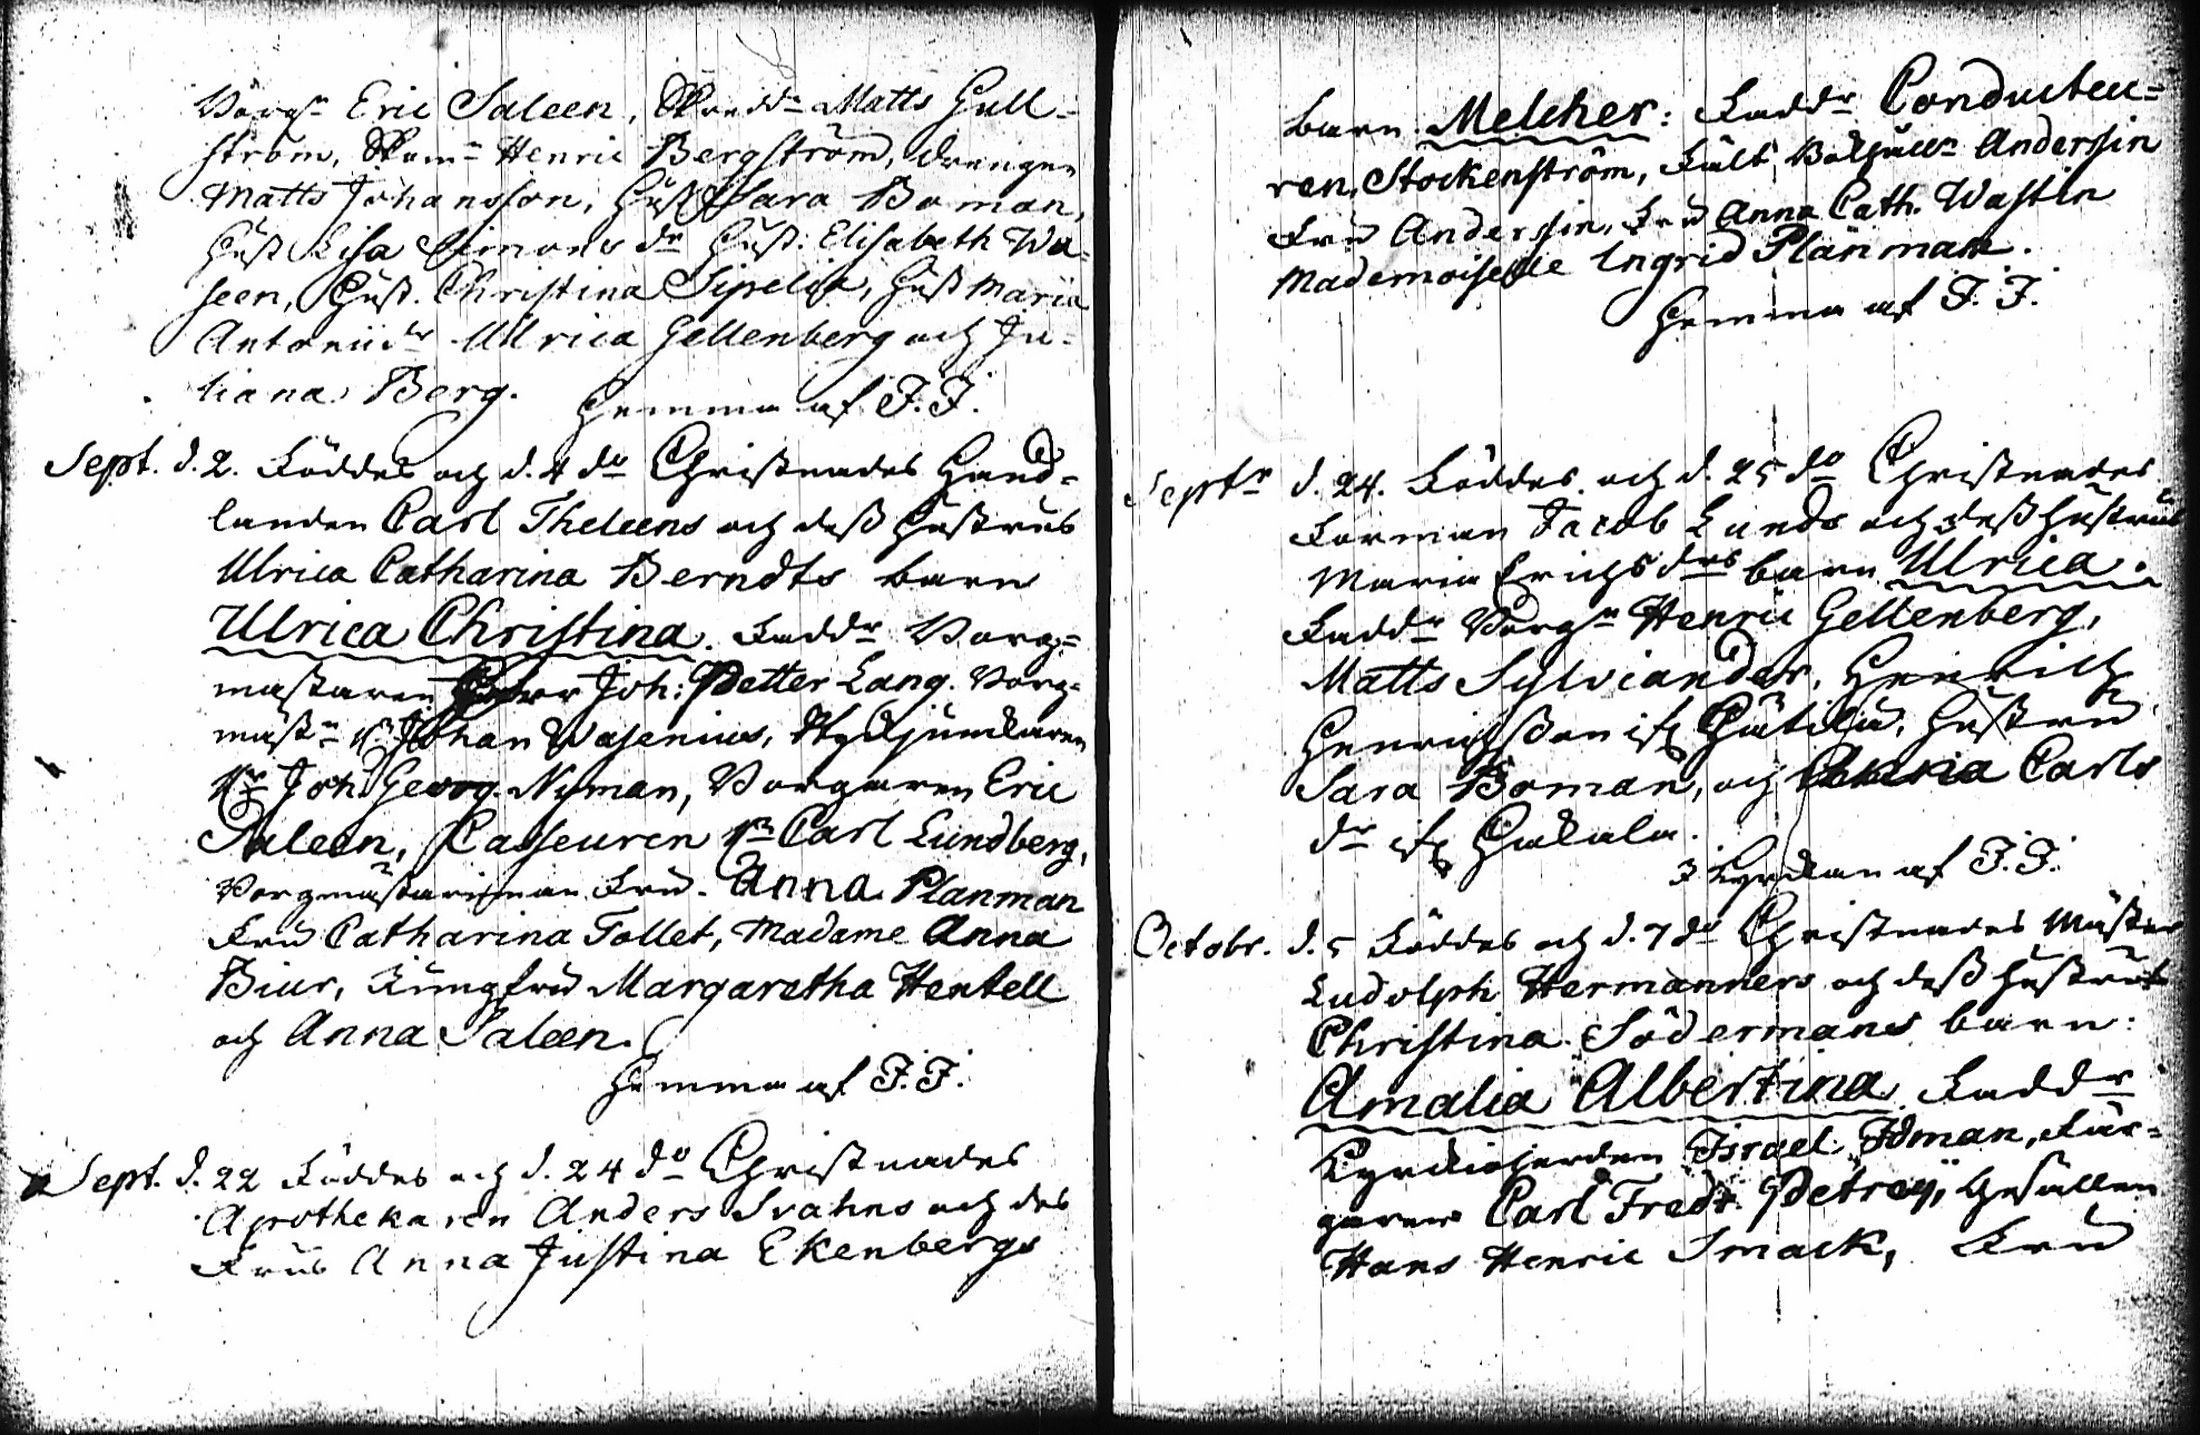 Borgn Eric Saleen, Skredd. Matts Gull=
ström, Skom. Henric Bergström, drengen
Matts Johansson, Hust Sara Boman,
Hust Lisa Simons dr Hust: Elisabeth Wa=
seen, Hust. Christina Sipelia, Hust Maria
Antonii dr Ulrica Gellenberg och Ju=
liana Berg.
Hemma af J. J.
Sept. d. 2. Föddes och d. 4 do Christnades Hand=
landen Carl Theleens och dess Hustrus
Ulrica Catharina Berndts barn
Ulrica Christina. Fadd. Borg=
mästaren Herr Joh: Petter Lang. Borg=
mäst. Hr Johan Wasenius,
Hr Joh. Georg. Nyman, Borgaren Eric
Saleen, Casseuren Hr Carl Lundberg,
Borgmästarinnan Fru. Anna Planman
Fru Catharina Tollet, Madame Anna
Biur, Jungfru Margaretha Hentell
och Anna Saleen.
Hemma af J. J.
Sept. d. 22 Föddes och d. 24 do Christnades
Apothekaren Anders Svahns och des
Frus Anna Justina Ekenbergs
barn Melcher: Fadd. Conducteu=
ren Stockenström, Fält Anderssin
Fru Anderssin, Fru Anna Cath. Wastin
Mademoiselle Ingrid Planman.
Hemma af J. J.
Septr d. 24. Föddes och d. 25 do Christnades
Forman Jacob Lunds och dess hustrus
Maria Erichs drs barn Ulrica.
Fadd. Borgn Henric Gellenberg,
Matts Sylviander, Henrich
Henrichsson ifr Hustru
Sara Boman, och Carls
dr ifr Hakala.
I Kyrckan af J. J.
Octobr. d. 5 Föddes och d. 7 do Christnades Mäster
Ludolph Hermanners och dess hustrus
Christina Södermans barn:
Amalia Albertina. Fadd.
Kyrckioherden Israel Idman, Fär=
garen Carl Fredr. Petreij, Gesällen
Hans Henric Smack, Fru